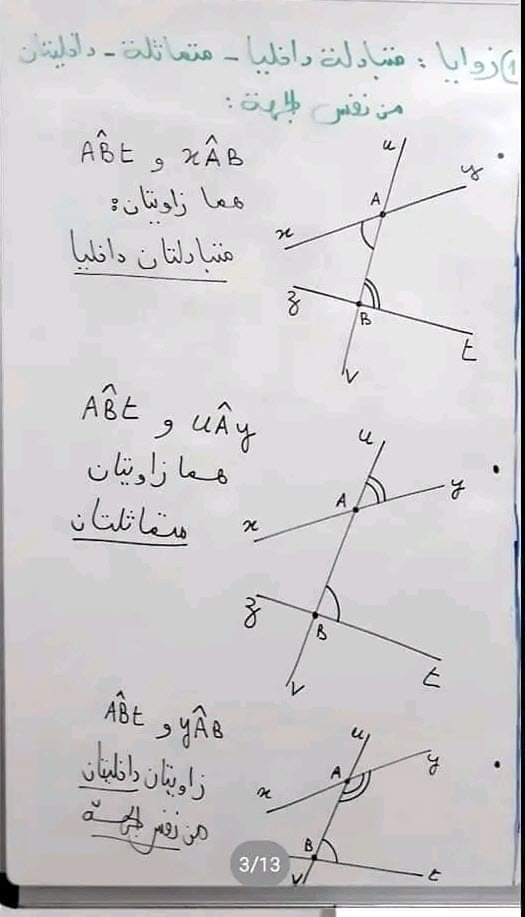 1) زوايا : متبادلة داخليا - متماثلة - داخليتان
من نفس الجهة :
xÂB و AB̂t
هما زاويتان :
متبادلتان داخليا
u
y
A
x
z
B
t
v
uÂy و AB̂t
هما زاويتان
متماثلتان
u
y
A
x
z
B
t
v
yÂB و AB̂t
زاويتان داخليتان
من نفس الجهة
u
y
A
x
B
t
v
3/13